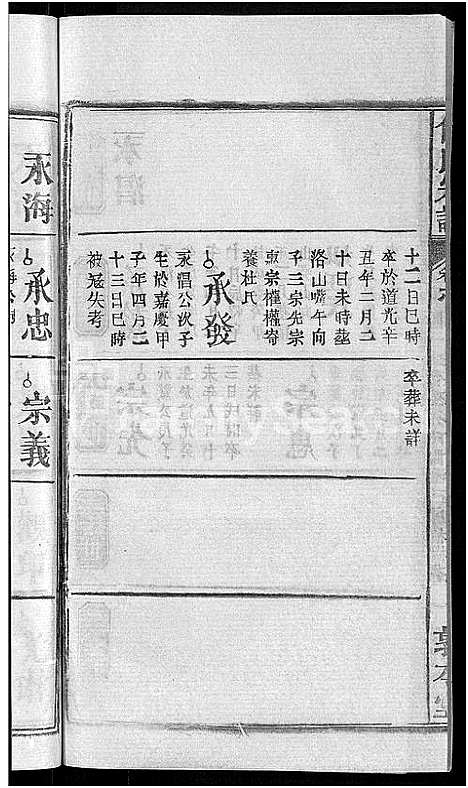 十二日巳時
卒於道光辛
丑年二月二
十日未時葬
洛山嘴午向
子三宗先宗
惠宗權權寄
養杜氏
承發
永昌公次子
生於嘉慶甲
子年四月二
十三日巳時
被冦失考
卒葬未詳
敦本堂
永海
承忠
宗義